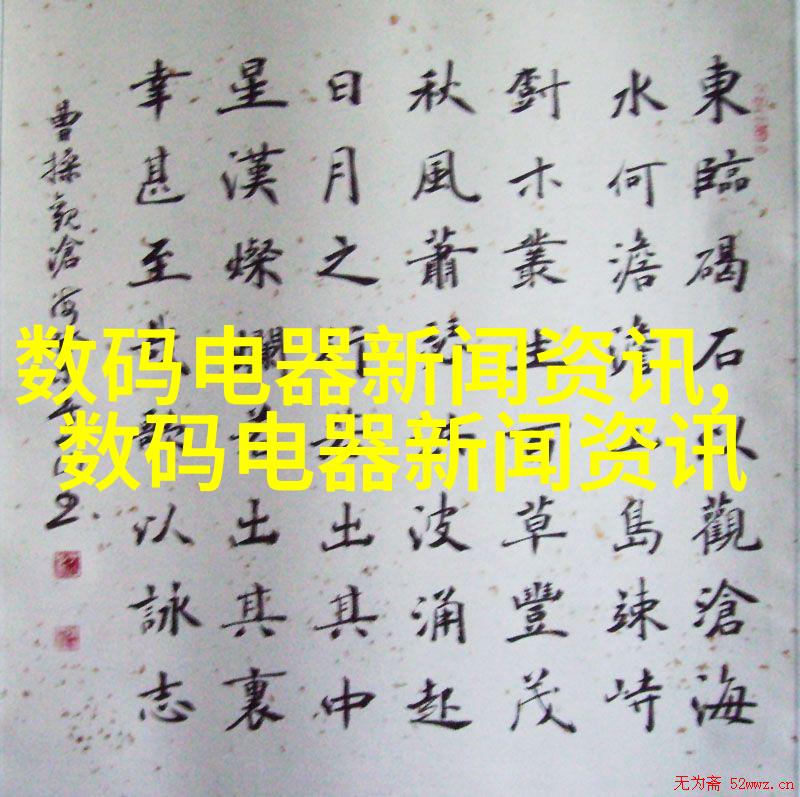 東臨碣石以觀滄海
水何澹澹山島竦峙
木叢生百草豐茂
秋風蕭瑟波涌起
日月之行若出其中
星漢燦爛若出其裏
幸甚至哉歌以詠志
曹操觀滄海
数码电器新闻资讯,
数码电器新闻资讯
无为斋 52wwz.cn